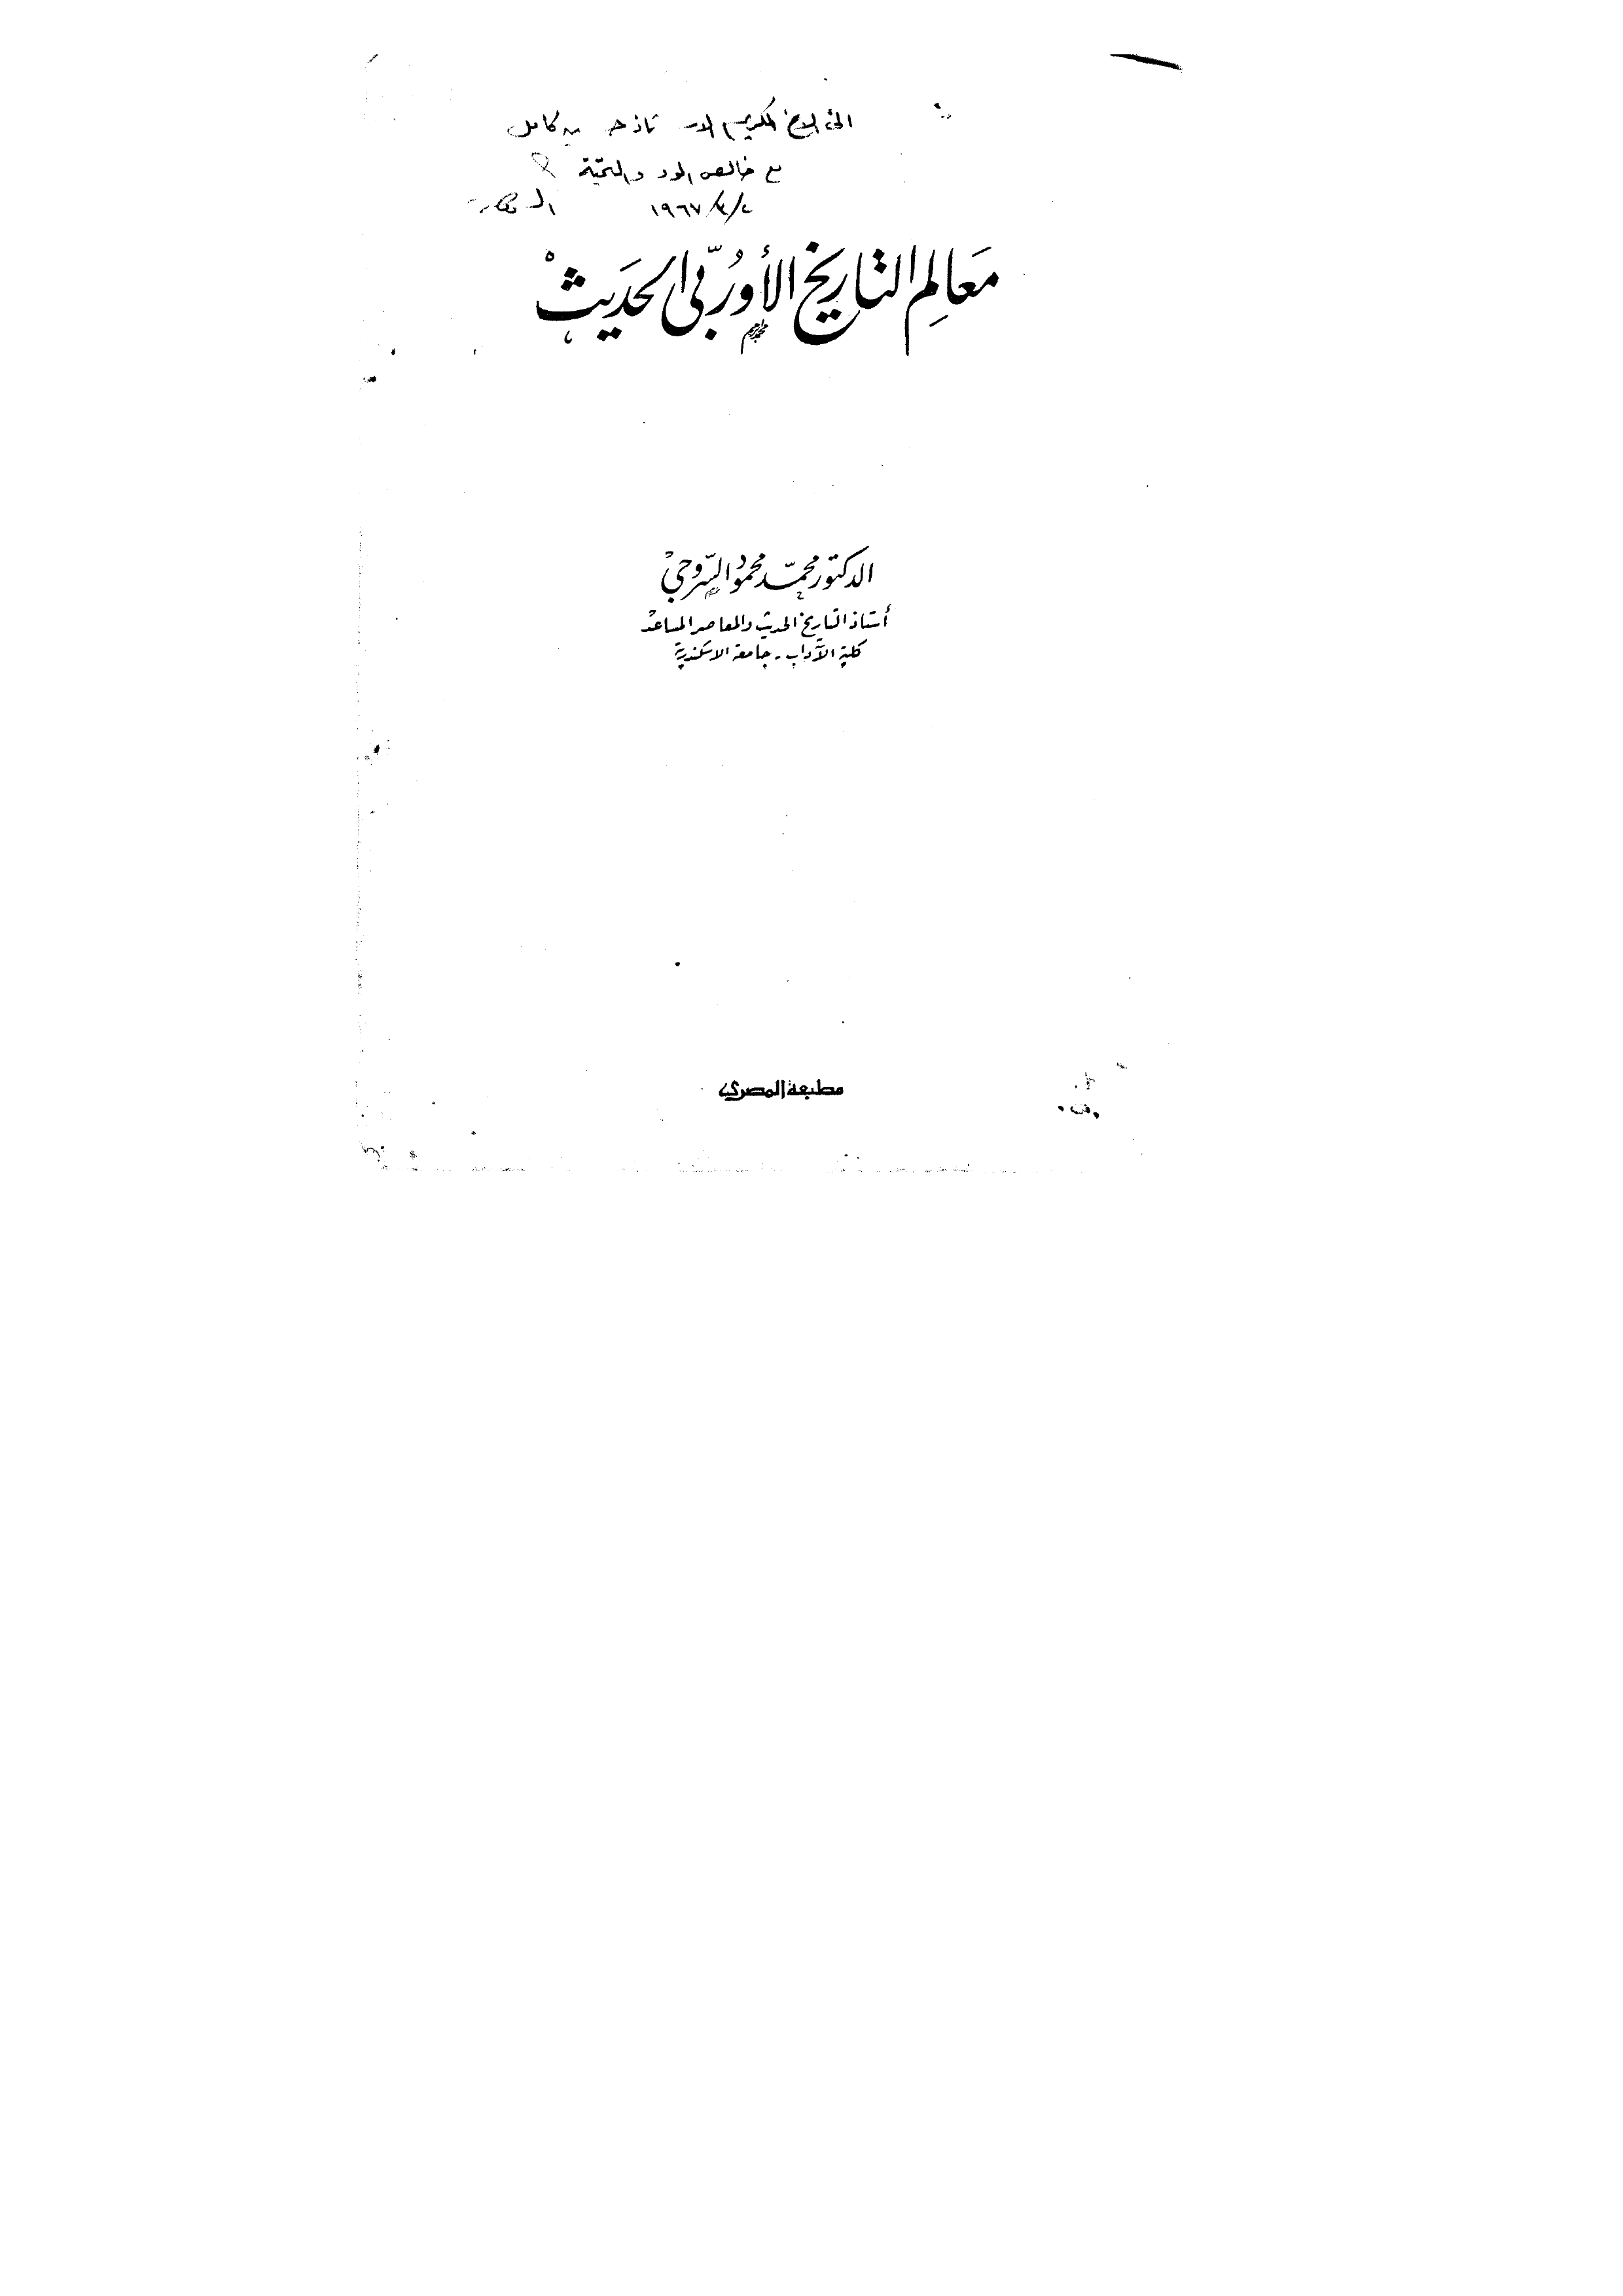 الى الاخ الكريم الاستاذ كامل
مع خالص الود والتحية
١٩٦٧/٣/
مَعَالِم التاريخ الأورُبّى الحَديثْ
الدكتور محمّد محمود السّروجى
أستاذ التاريخ الحديث والمعاصر المساعد
كلية الآداب - جامعة الاسكندرية
مطبعة المصرى